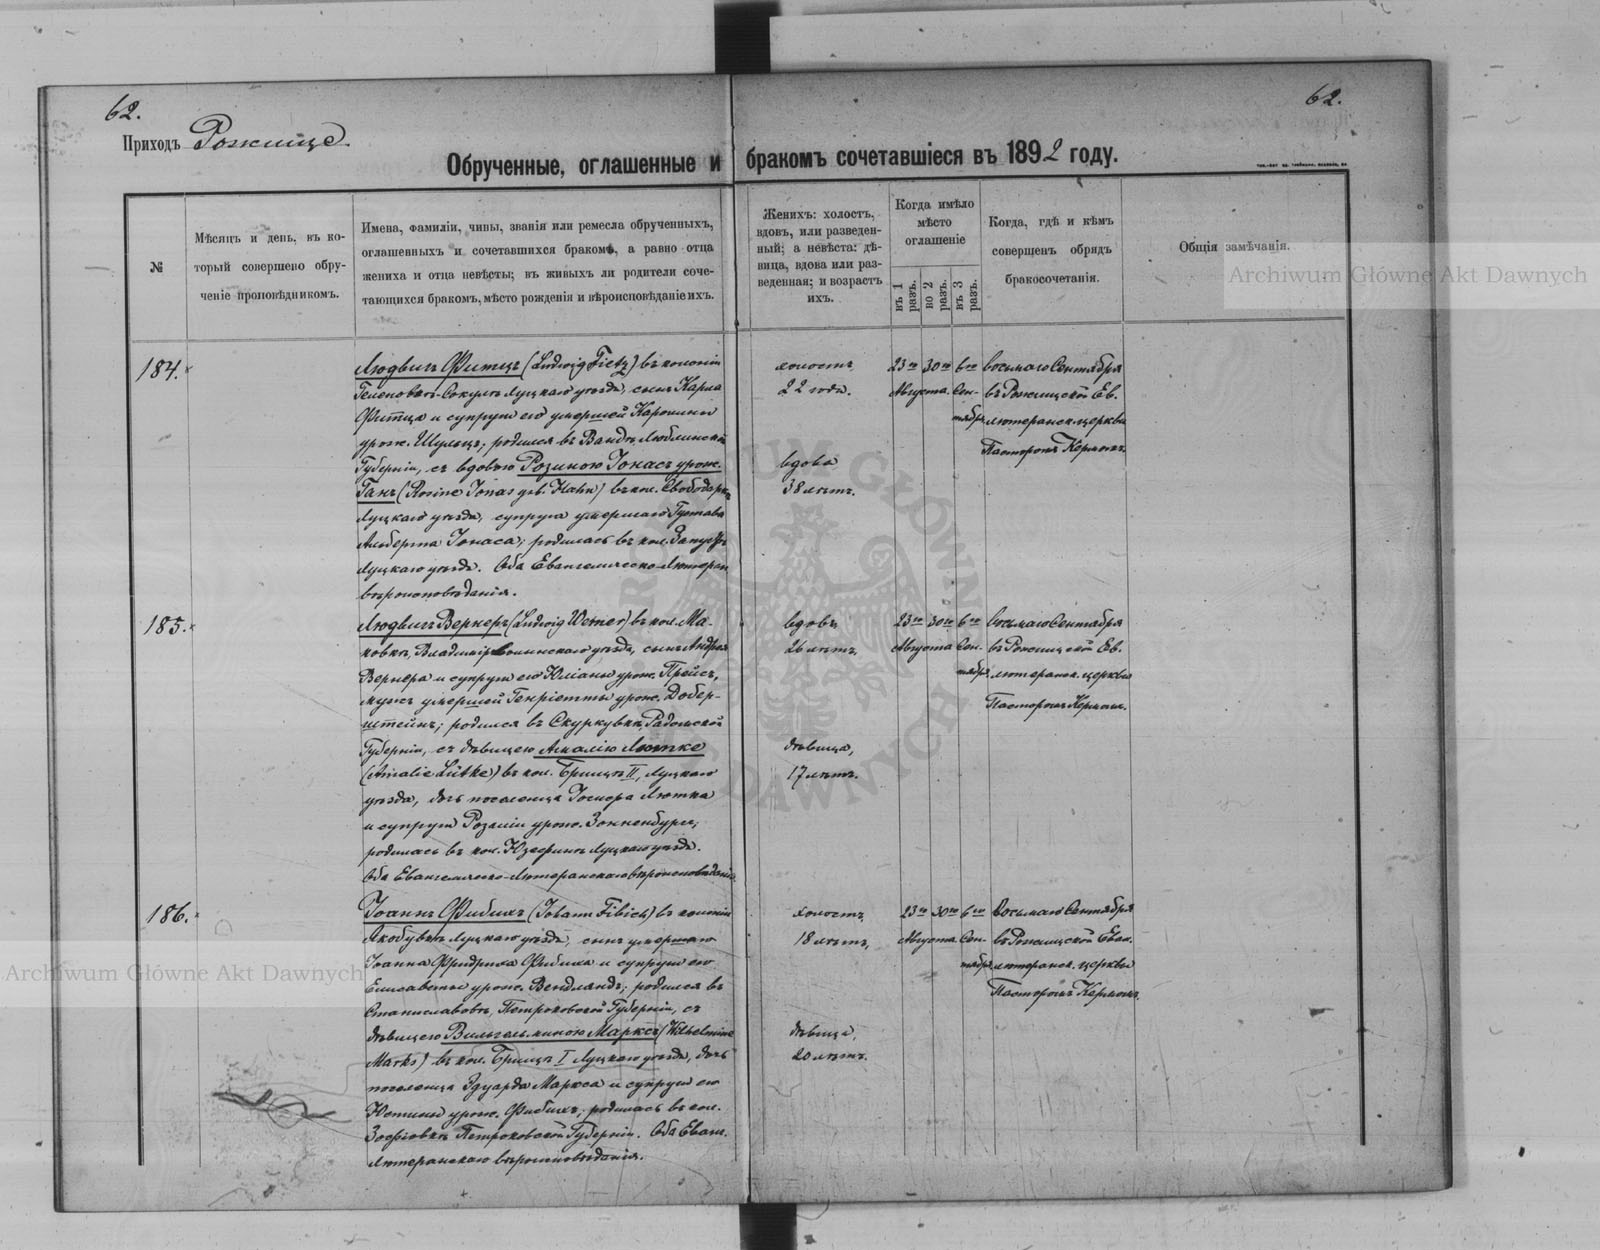 62.
62.
Приходъ Рожище.
Обрученные, оглашенные и бракомъ сочетавшіеся въ 1892 году.
№
Мѣсяцъ и день, въ ко-
торый совершено обру-
ченіе проповѣдникомъ.
Имена, фамиліи, чины, званія или ремесла обрученныхъ,
оглашенныхъ и сочетавшихся бракомъ, а равно отца
жениха и отца невѣсты; въ живыхъ ли родители соче-
тающихся бракомъ, мѣсто рожденія и вѣроисповѣданіе ихъ.
Женихъ: холостъ,
вдовъ, или разведен-
ный; а невѣста: дѣ-
вица, вдова или раз-
веденная; и возрастъ
ихъ.
Когда имѣло
мѣсто
оглашеніе
въ 1 разъ.
во 2 разъ.
въ 3 разъ.
Когда, гдѣ и кѣмъ
совершенъ обрядъ
бракосочетанія.
Общія замѣчанія.
184.
Людвигъ Фитцъ (Ludwig Fietz) въ колоніи
Геленовкѣ-Сокулъ Луцкаго уѣзда, сынъ Карла
Фитца и супруги его умершей Каролины
урож. Шульцъ; родился въ Вандѣ, Люблинской
Губерніи, съ вдовою Розиною Іонасъ урож.
Ганъ (Rosine Jonas geb. Hahn) въ кол. Свободарка
Луцкаго уѣзда, супруга умершаго Густава
Альберта Іонаса; родилась въ кол. Запустъ
Луцкаго уѣзда. Оба Евангелическо-Лютеран
вѣроисповѣданія.
холостъ
22 года.
вдова
38 лѣтъ.
23го 30го 6го
Августа. Сен-
тября
восьмаго Сентября
въ Рожищской Ев.
лютеранск. церкви
Пасторомъ Кермомъ.
185.
Людвигъ Вернеръ (Ludwig Werner) въ кол. Ма-
ковкѣ, Владиміръ Волынскаго уѣзда, сынъ Андрея
Вернера и супруги его Юліаны урож. Прейсъ,
мужъ умершей Генріетты урож. Добер-
штейнъ; родился въ Скуркувкѣ, Радомской
Губерніи, съ дѣвицею Амалію Лютке
(Amalie Lütke) въ кол. Брищъ II, Луцкаго
уѣзда, дочь поселенца Лютка
и супруги Розаліи урож. Зонненбургъ;
родилась въ кол. Юзефинъ Луцкаго уѣзда.
Оба Евангелическо-Лютеранскаго вѣроисповѣданія.
вдовъ
26 лѣтъ,
дѣвица,
17 лѣтъ.
23го 30го 6го
Августа Сен-
тября
восьмаго Сентября
въ Рожищской Ев.
лютеранск. церкви
Пасторомъ Кермомъ.
186.
Іоаннъ Фибихъ (Johann Fibich) въ колоніи
Якобувкѣ Луцкаго уѣзда, сынъ умершаго
Іоанна Фридриха Фибиха и супруги его
Елисаветы урож. Вендландъ; родился въ
Станиславовѣ, Петроковской Губерніи, съ
дѣвицею Вильгельминою Марксъ (Wilhelmine
Marks) въ кол. Брищъ I Луцкаго уѣзда, дочь
поселенца Эдуарда Маркса и супруги его
Юстины урож. Фибихъ; родилась въ кол.
Зофіовкѣ Петроковской Губерніи. Оба Еванг.
лютеранскаго вѣроисповѣданія.
холостъ,
18 лѣтъ,
дѣвица,
20 лѣтъ.
23го 30го 6го
Августа Сен-
тября
Восьмаго Сентября
въ Рожищской Еван.
лютеранск. церкви
Пасторомъ Кермомъ.
Archiwum Główne Akt Dawnych
Archiwum Główne Akt Dawnych
ARCHIWUM GŁÓWNE AKT DAWNYCH